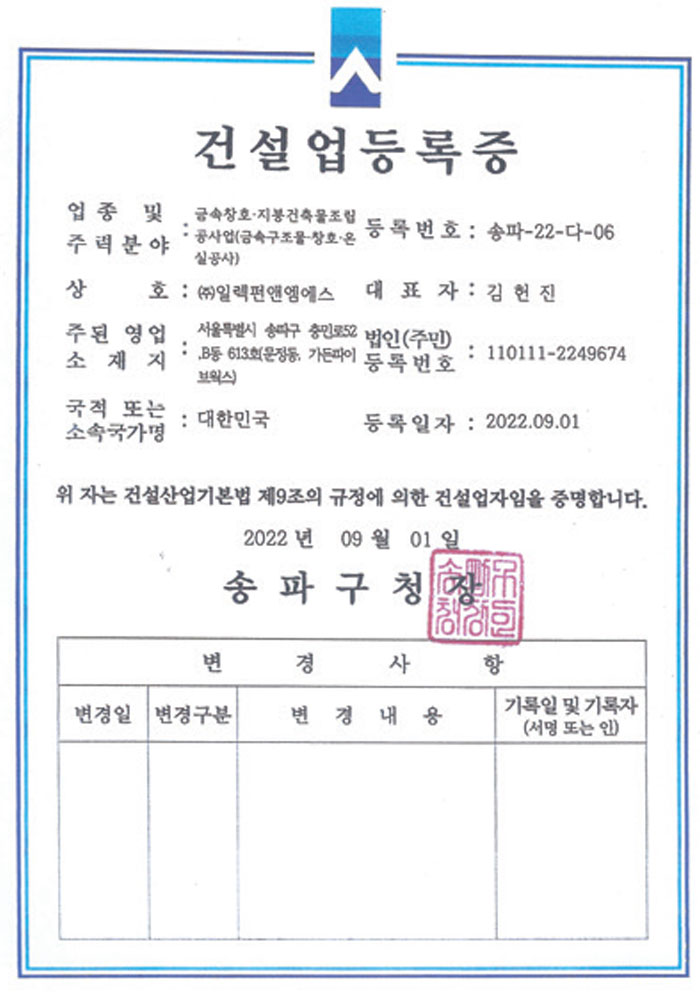 건설업등록증
업종 및 주력분야 : 금속창호·지붕건축물조립공사업(금속구조물·창호·온실공사) 등록번호 : 송파-22-다-06
상 호 : ㈜일렉펀앤엠에스 대 표 자 : 김 헌 진
주된 영업 소 재 지 : 서울특별시 송파구 충민로52,B동 613호(문정동, 가든파이브웍스) 법인(주민)등록번호 : 110111-2249674
국적 또는 소속국가명 : 대한민국 등록일자 : 2022.09.01
위 자는 건설산업기본법 제9조의 규정에 의한 건설업자임을 증명합니다.
2022 년 09 월 01 일
송 파 구 청 장
변 경 사 항
변경일 변경구분 변 경 내 용 기록일 및 기록자
(서명 또는 인)